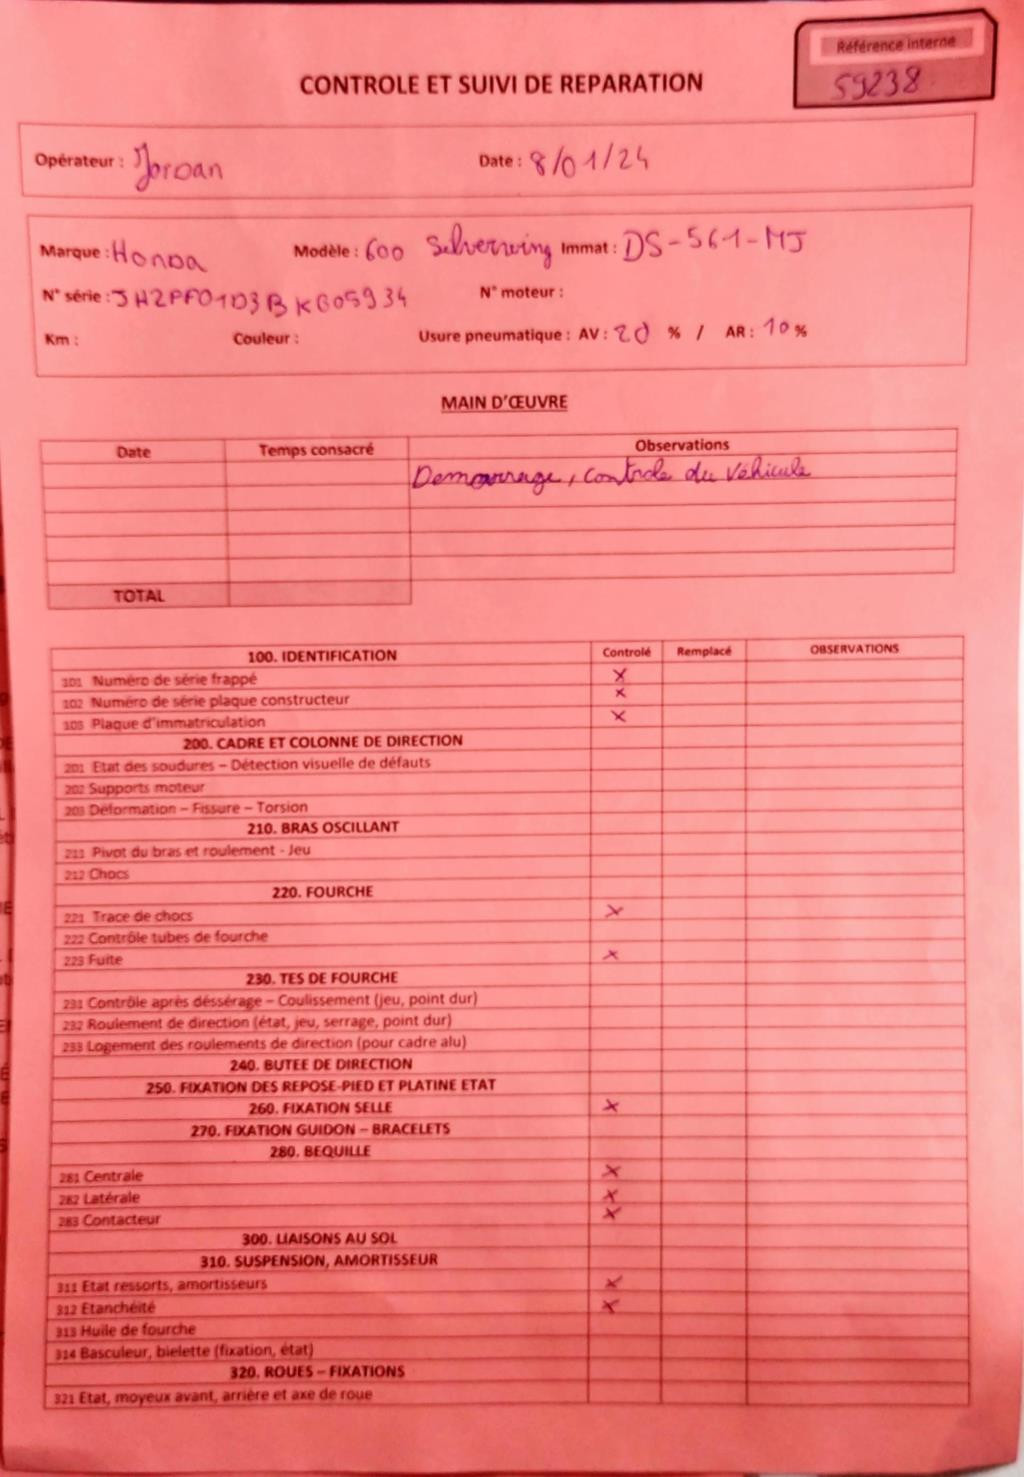 Référence interne
59238
CONTROLE ET SUIVI DE REPARATION
Opérateur : Jordan Date : 8/01/24
Marque : Honda Modèle : 600 Selverwing Immat : DS-561-MJ
N° série : JH2PF01D3BK605934 N° moteur :
Km : Couleur : Usure pneumatique : AV : 20 % / AR : 10 %
MAIN D'ŒUVRE
Date Temps consacré Observations
Demarrage, controle du véhicule
TOTAL
100. IDENTIFICATION Controlé Remplacé OBSERVATIONS
101 Numéro de série frappé X
102 Numéro de série plaque constructeur X
103 Plaque d'immatriculation X
200. CADRE ET COLONNE DE DIRECTION
201 Etat des soudures – Détection visuelle de défauts
202 Supports moteur
203 Déformation – Fissure – Torsion
210. BRAS OSCILLANT
211 Pivot du bras et roulement - Jeu
212 Chocs
220. FOURCHE
221 Trace de chocs X
222 Contrôle tubes de fourche
223 Fuite X
230. TES DE FOURCHE
231 Contrôle après déssérage – Coulissement (jeu, point dur)
232 Roulement de direction (état, jeu, serrage, point dur)
233 Logement des roulements de direction (pour cadre alu)
240. BUTEE DE DIRECTION
250. FIXATION DES REPOSE-PIED ET PLATINE ETAT
260. FIXATION SELLE X
270. FIXATION GUIDON – BRACELETS
280. BEQUILLE
281 Centrale X
282 Latérale X
283 Contacteur X
300. LIAISONS AU SOL
310. SUSPENSION, AMORTISSEUR
311 Etat ressorts, amortisseurs X
312 Etanchéité X
313 Huile de fourche
314 Basculeur, bielette (fixation, état)
320. ROUES – FIXATIONS
321 Etat, moyeux avant, arrière et axe de roue